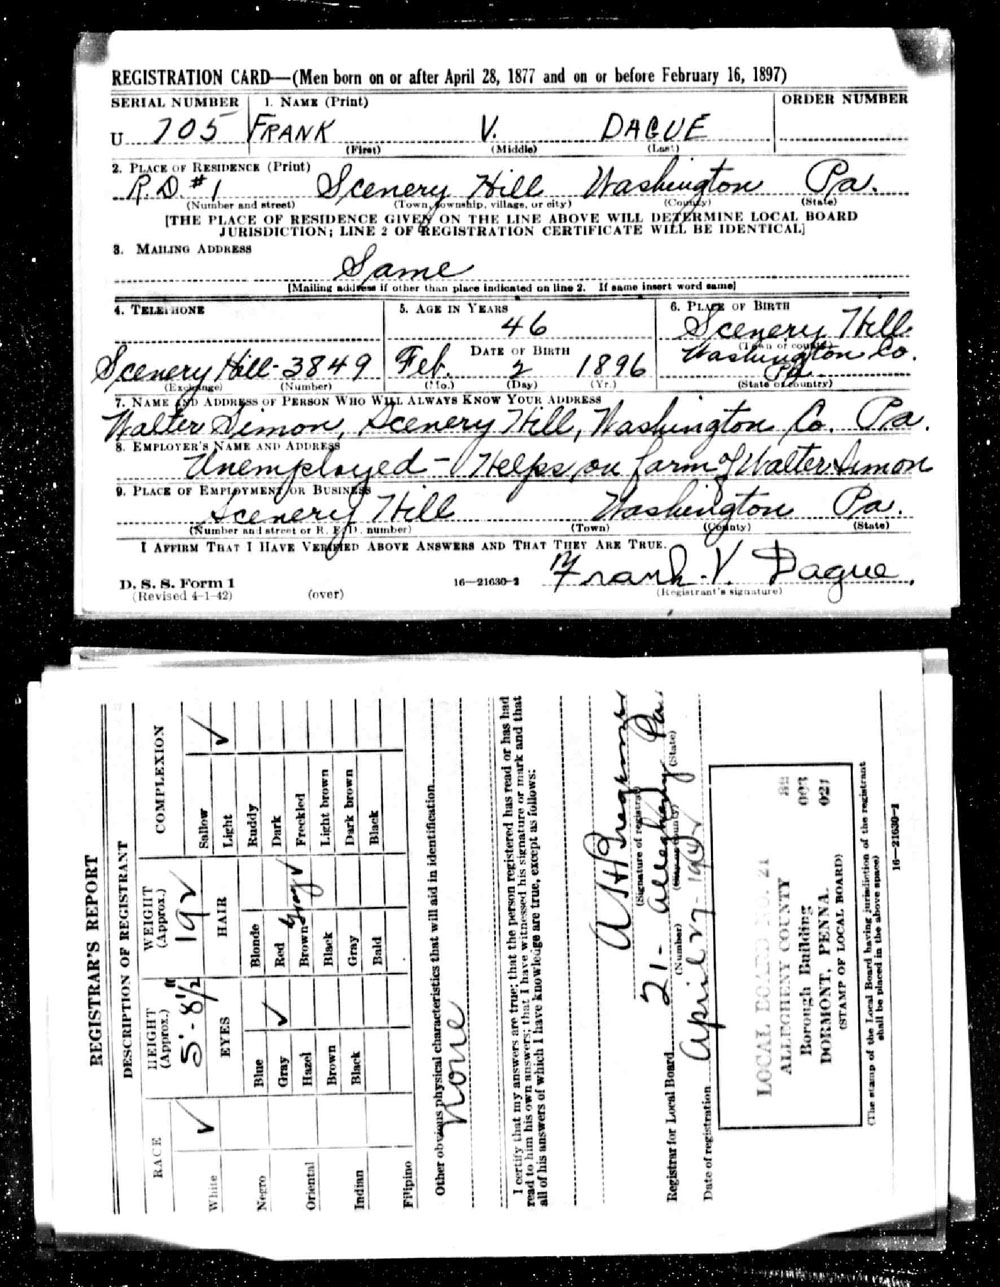 REGISTRATION CARD—(Men born on or after April 28, 1877 and on or before February 16, 1897)
SERIAL NUMBER 1. NAME (Print) ORDER NUMBER
U 705 FRANK V. DAGUE
(First) (Middle) (Last)
2. PLACE OF RESIDENCE (Print)
R.D. #1 Scenery Hill Washington Pa.
(Number and street) (Town, township, village, or city) (County) (State)
[THE PLACE OF RESIDENCE GIVEN ON THE LINE ABOVE WILL DETERMINE LOCAL BOARD
JURISDICTION; LINE 2 OF REGISTRATION CERTIFICATE WILL BE IDENTICAL]
3. MAILING ADDRESS
Same
[Mailing address if other than place indicated on line 2. If same insert word same]
4. TELEPHONE 5. AGE IN YEARS 6. PLACE OF BIRTH
46 Scenery Hill
DATE OF BIRTH (Town or county)
Scenery Hill-3849 Feb. 2 1896 Washington Co.
Pa.
(Exchange) (Number) (Mo.) (Day) (Yr.) (State or country)
7. NAME AND ADDRESS OF PERSON WHO WILL ALWAYS KNOW YOUR ADDRESS
Walter Simon, Scenery Hill, Washington Co. Pa.
8. EMPLOYER'S NAME AND ADDRESS
Unemployed - Helps on farm of Walter Simon
9. PLACE OF EMPLOYMENT OR BUSINESS
Scenery Hill Washington Pa.
(Number and street or R. F. D. number) (Town) (County) (State)
I AFFIRM THAT I HAVE VERIFIED ABOVE ANSWERS AND THAT THEY ARE TRUE.
D. S. S. Form 1 16—21630-2 Frank. V. Dague.
(Revised 4-1-42) (over) (Registrant's signature)
REGISTRAR'S REPORT
DESCRIPTION OF REGISTRANT
RACE HEIGHT (Approx.) WEIGHT (Approx.) COMPLEXION
5'-8 1/2" 192
White ✓ EYES HAIR Sallow
Light ✓
Negro Blue Blonde Ruddy
Gray ✓ Red Dark
Oriental Hazel Brown Gray ✓ Freckled
Brown Black Light brown
Indian Black Gray Dark brown
Bald Black
Filipino
Other obvious physical characteristics that will aid in identification
None
I certify that my answers are true; that the person registered has read or has had
read to him his own answers; that I have witnessed his signature or mark and that
all of his answers of which I have knowledge are true, except as follows:
(Signature of registrar)
Registrar for Local Board 21- Allegheny Pa.
(Number) (City or county) (State)
Date of registration April 27-1942
LOCAL BOARD NO. 21 
ALLEGHENY COUNTY 003
Borough Building 021
DORMONT, PENNA.
(STAMP OF LOCAL BOARD)
(The stamp of the Local Board having jurisdiction of the registrant
shall be placed in the above space)
16—21630-2